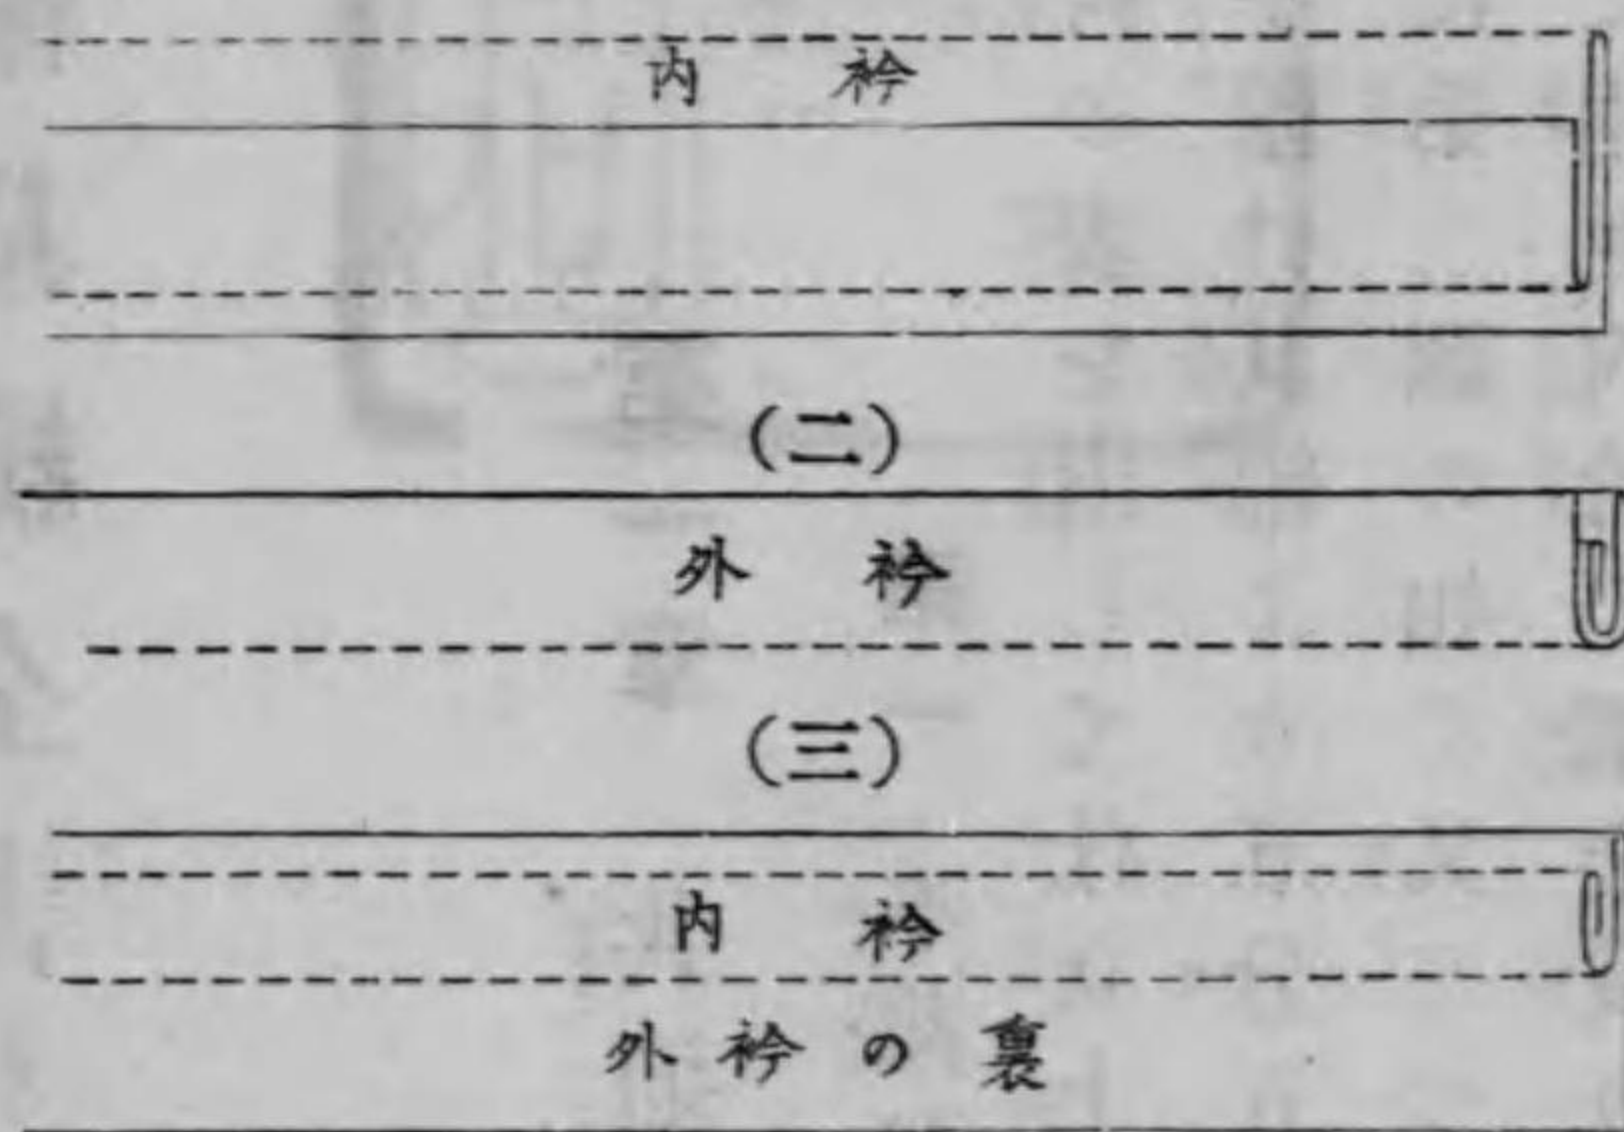 内衿
(二)
外衿
(三)
内衿
外衿の裏